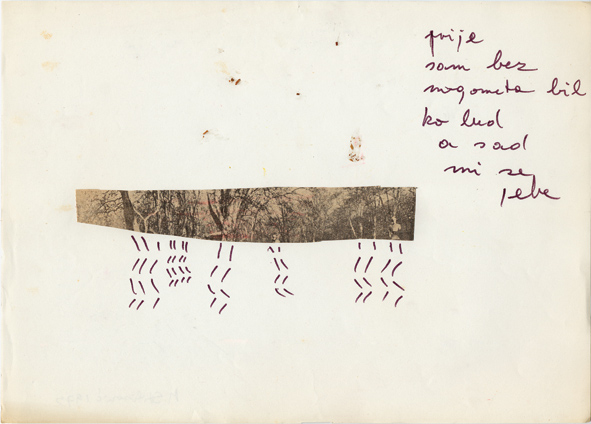 prije
sam bez
nogometa bil
ko lud
a sad
mi se
jebe